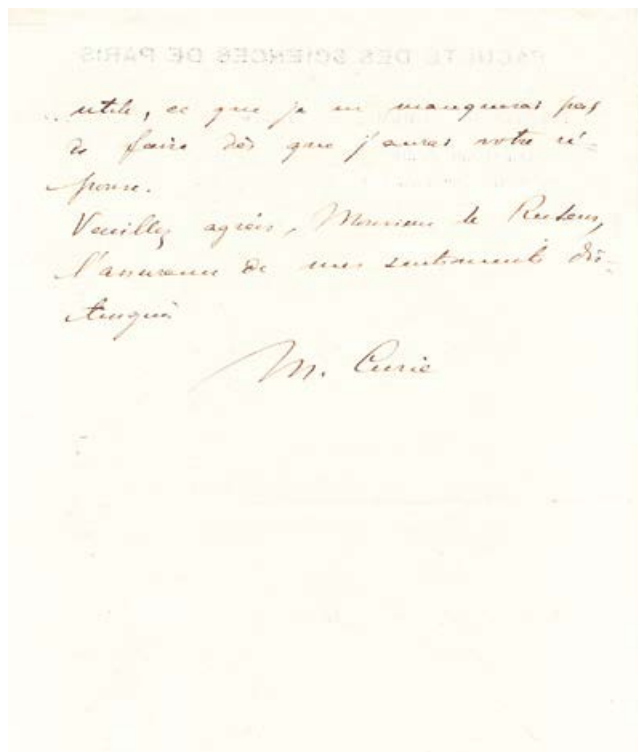 FACULTÉ DES SCIENCES DE PARIS
utile, ce que je ne manquerai pas
de faire dès que j'aurai votre ré=
ponse.
Veuillez agréer, Monsieur le Recteur,
l'assurance de mes sentiments dis-
tingués
M. Curie